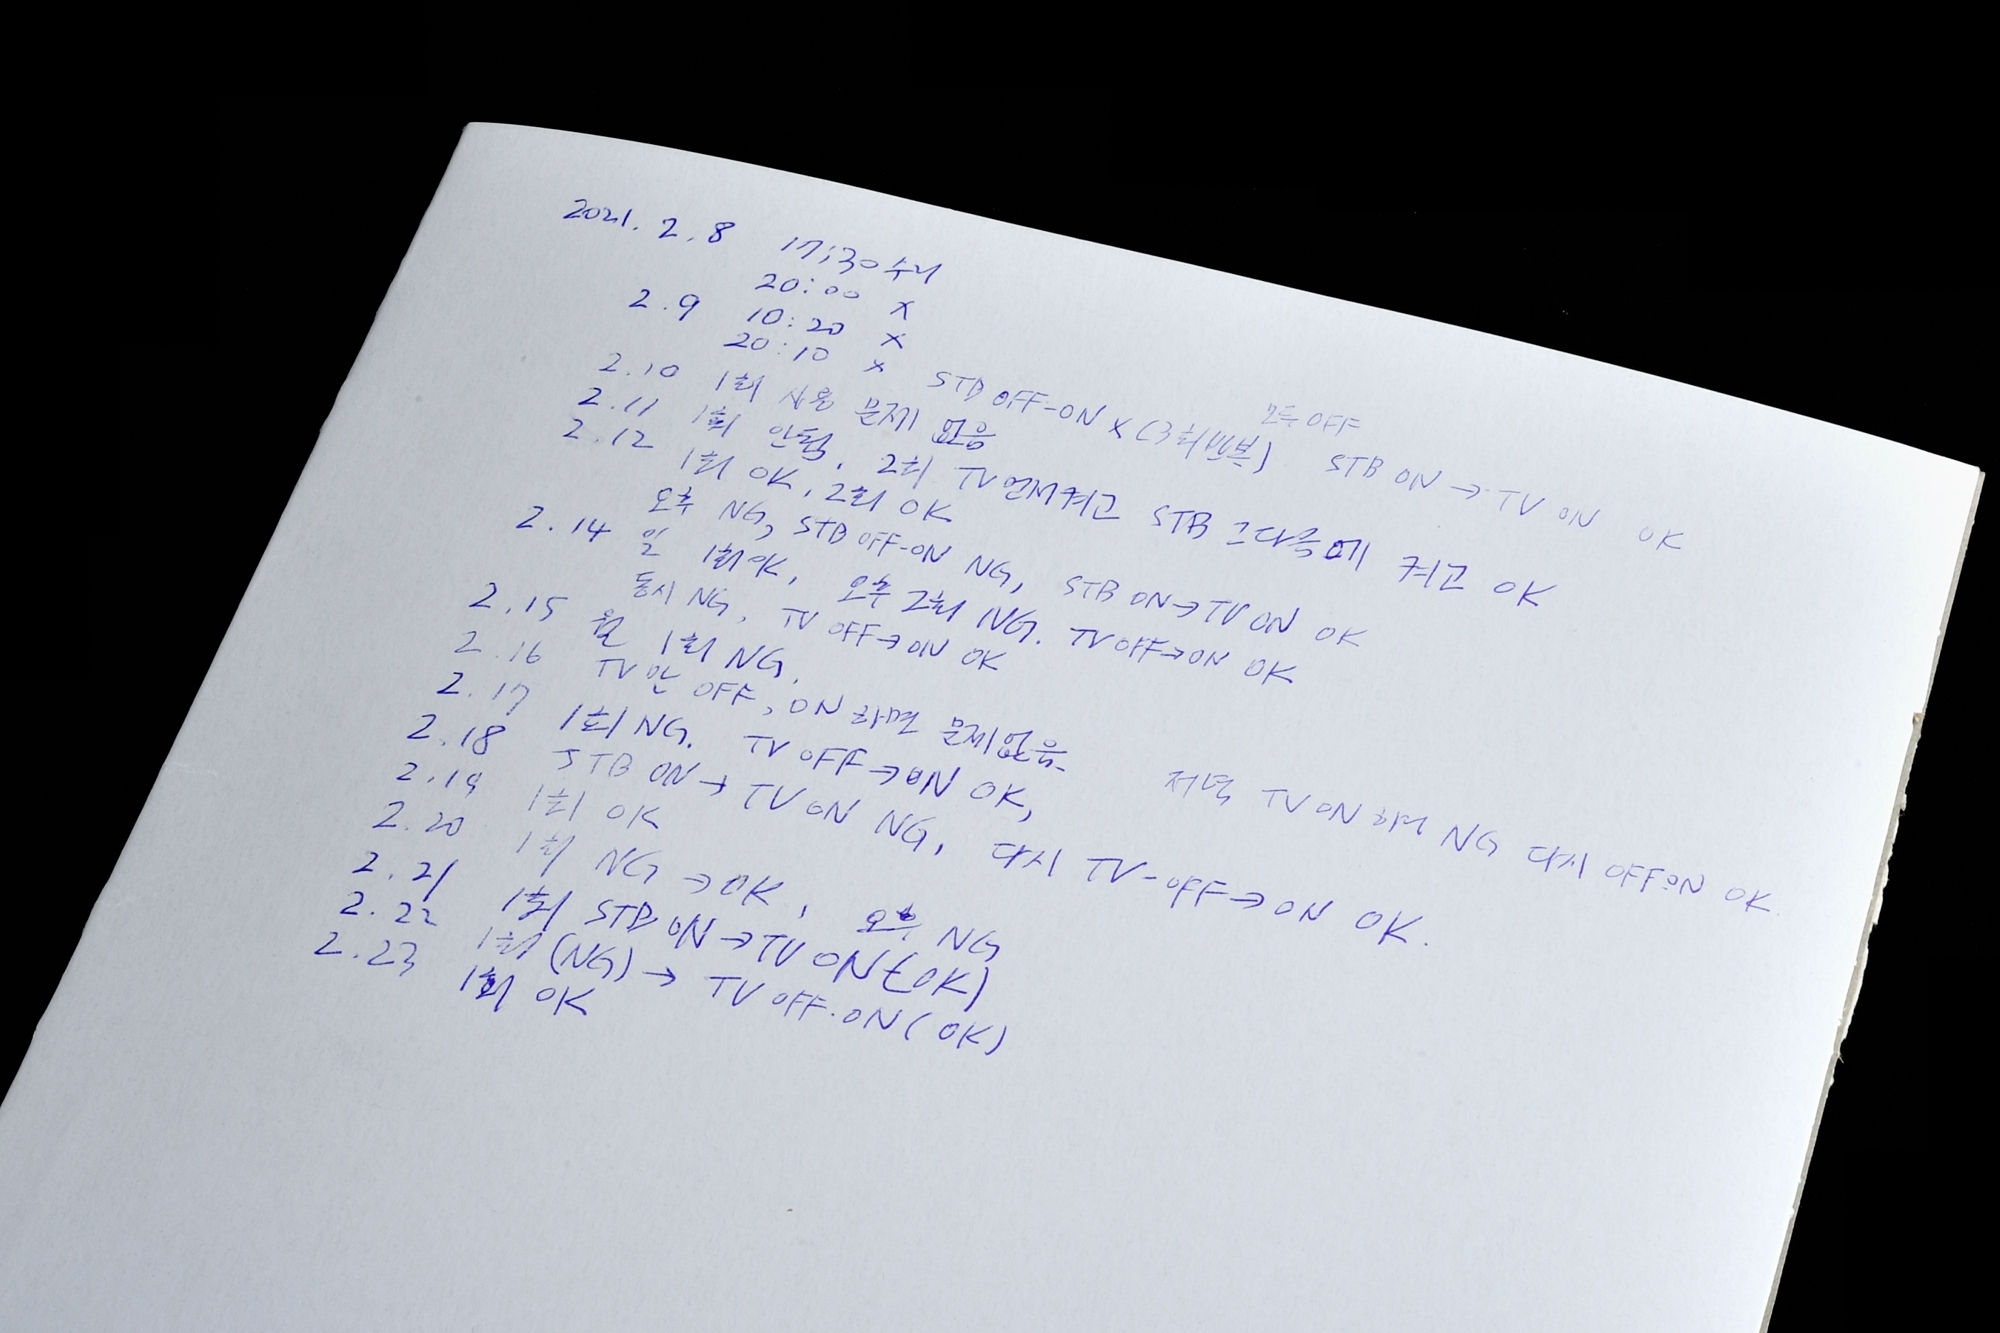 2021. 2. 8 17:30 수리
20:00 X
2.9 10:20 X
20:10 X STB OFF-ON X (3회반복) 모두 OFF STB ON → TV ON OK
2.10 1회 사용 문제 없음
2.11 1회 안됨, 2회 TV 먼저켜고 STB 그다음에 켜고 OK
2.12 1회 OK, 2회 OK
오후 NG, STB OFF-ON NG, STB ON→TV ON OK
2.14 일 1회 OK, 오후 2회 NG. TV OFF→ON OK
동시 NG, TV OFF→ON OK
2.15 월 1회 NG.
2.16 TV 만 OFF, ON 하면 문제없음. 저녁 TV ON 하여 NG 다시 OFF ON OK.
2.17 1회 NG. TV OFF→ON OK,
2.18 STB ON → TV ON NG, 다시 TV-OFF→ON OK.
2.19 1회 OK
2.20 1회 NG → OK, 오후 NG
2.21 1회 STB ON→TV ON (OK)
2.22 1회 (NG) → TV OFF.ON (OK)
2.23 1회 OK